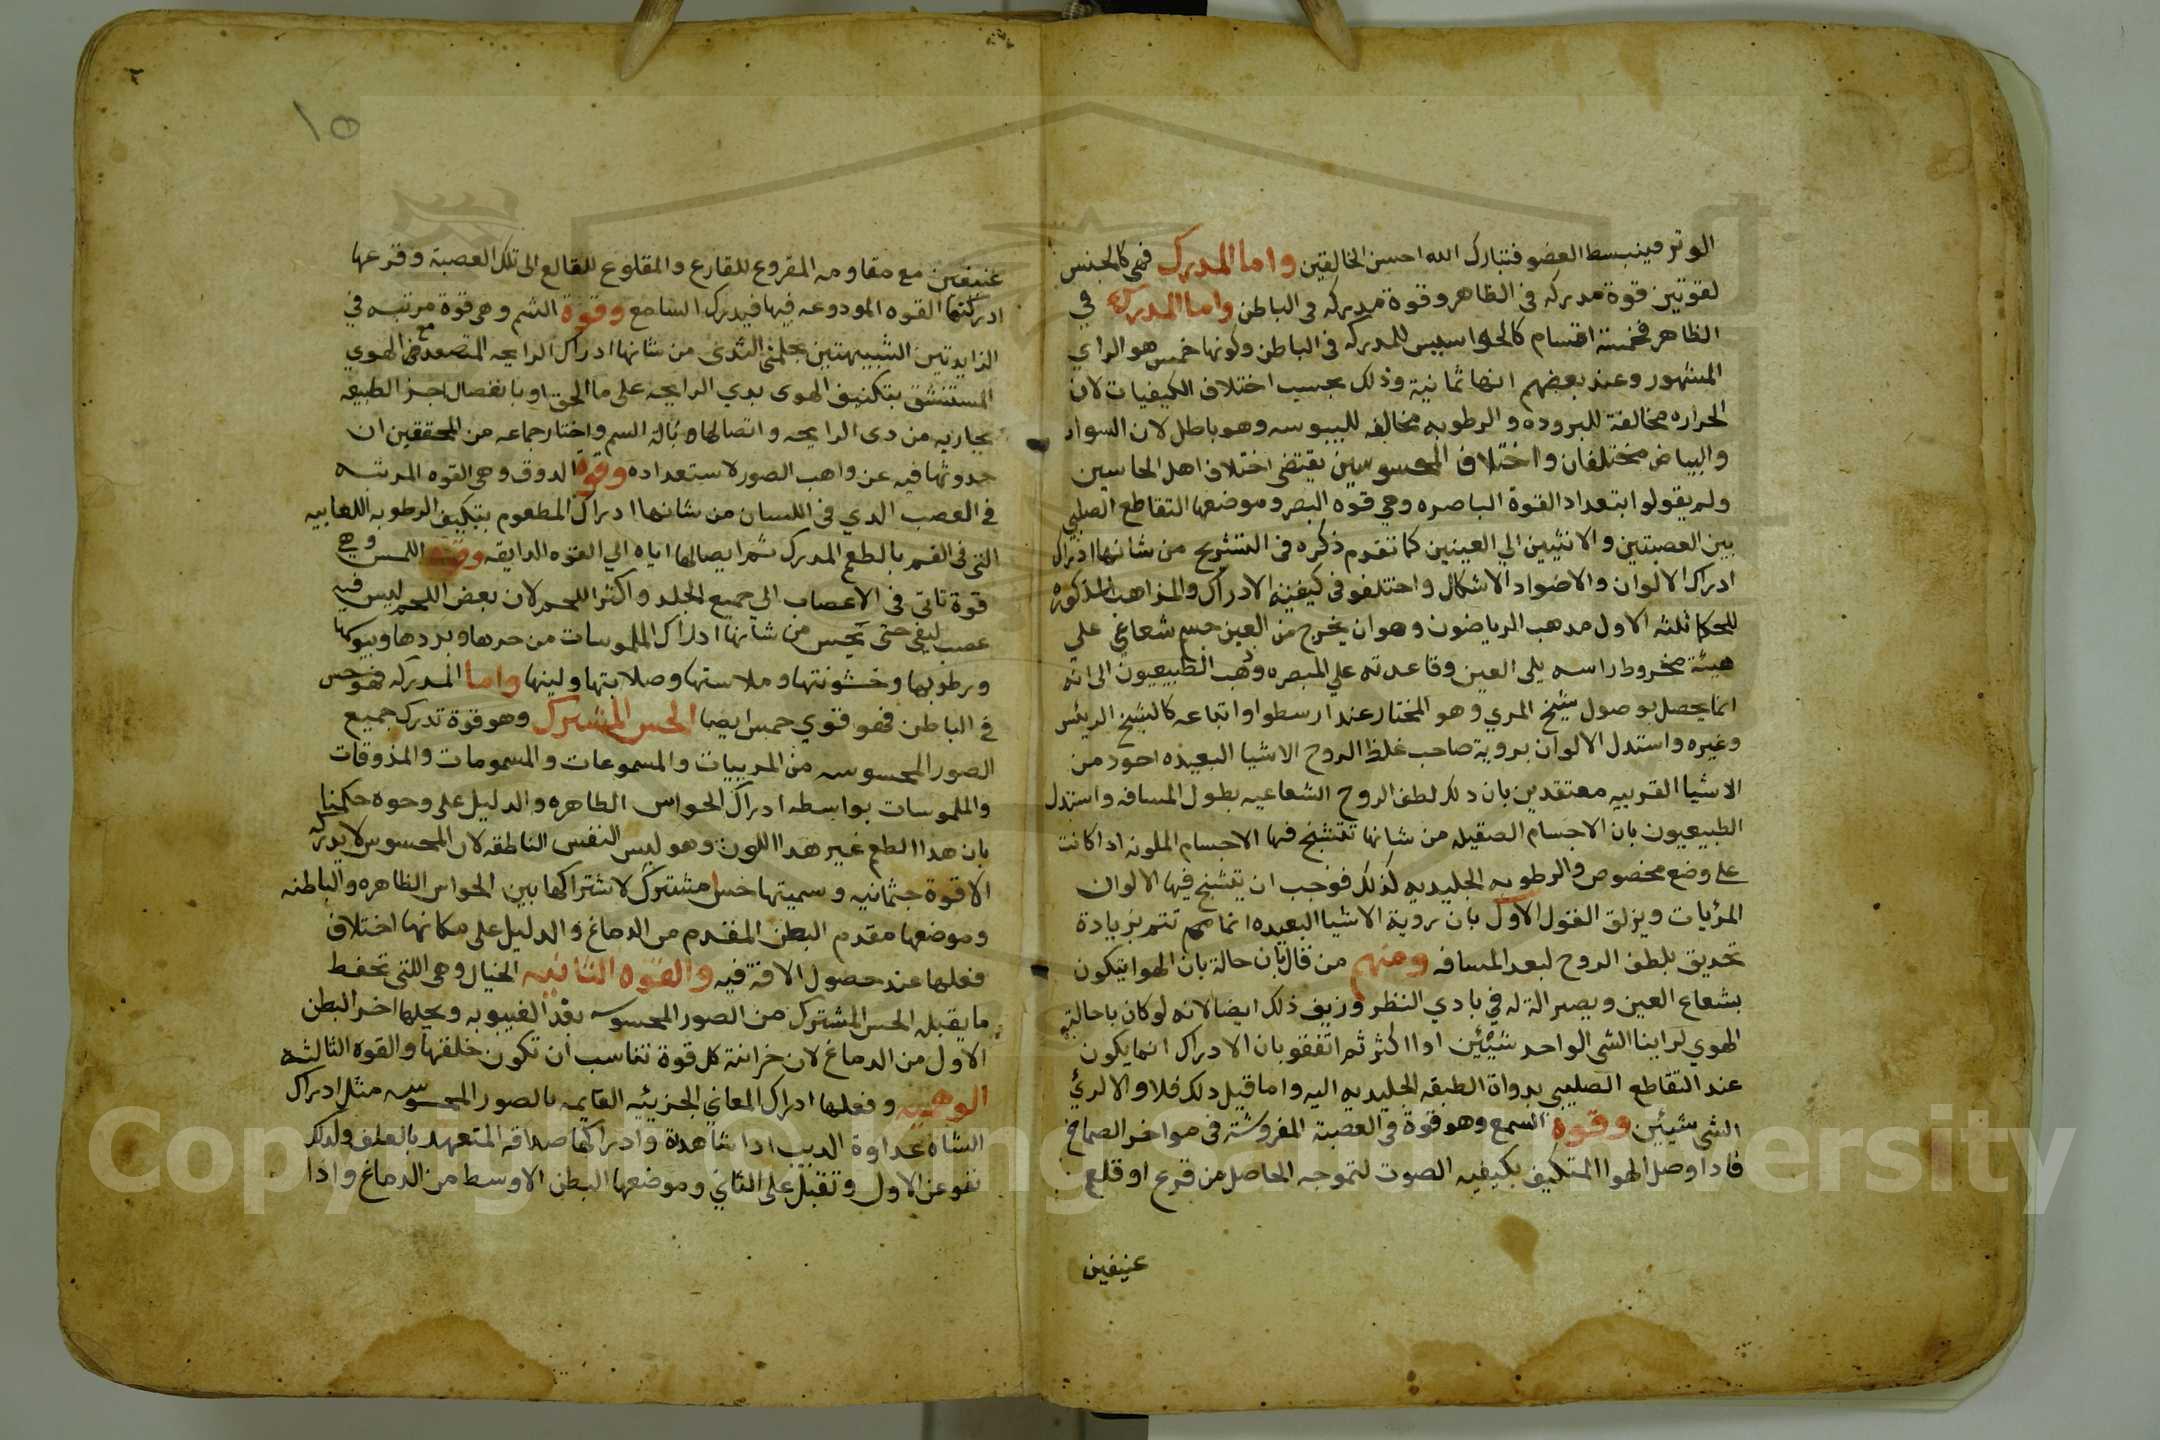 الوتر فينبسط العضو فتبارك الله احسن الخالقين واما المدرك فهى كالجنس
لقوتين قوة مدركه فى الظاهر وقوة مدركه فى الباطن واما المدركه في
الظاهر فخمسة اقسام كالحواسيس للمدركه فى الباطن وكونها خمس هو الراي
المشهور وعند بعضهم انها ثمانية وذلك بحسب اختلاف الكيفيات لان
الحراره مخالفة للبروده والرطوبه مخالفه لليبوسه وهو باطل لان السواد
والبياض مختلفان واختلاف المحسوسين يقتضى اختلاف اهل الحاسين
ولم يقولوا بتعداد القوة الباصره وهي قوه البصر وموضعها التقاطع الصليبي
بين العصبتين والانثيين الي العينين كما تقدم ذكره فى التشريح من شانها ادراك
ادراك الالوان والاضواد الاشكال واختلفو فى كيفية الادراك والمذاهب المذكوره
للحكما ثلثه الاول مدهب الرياضون وهو ان يخرج من العين جسم شعاعي علي
هيئة مخروط راسه يلى العين وقاعدته علي المبصره وذهب الطبيعيون الى انه
انما يحصل بوصول شبح المري وهو المختار عند ارسطوا واتباعه كالشيخ الريس
وغيره واستدل الالوان بروية صاحب غلظ الروح الاشيا البعيده اجود من
الاشيا القريبه معتقدين بان دلك لطف الروح الشعاعيه بطول المسافه واستدل
الطبيعيون بان الاجسام الصقيله من شانها تتشبح فيها الاجسام الملونه اداكانت
على وضع مخصوص والرطوبه الجليديه كذلك فوجب ان يتشبح فيها الالوان
المرئيات ويزلق القول الاول بان روية الاشيا البعيده انما هم تتم بزيادة
تحديق بلطف الروح لبعد المسافه ومنهم من قال بان حالة بان الهوا يتكون
بشعاع العين ويصير الة له في بادي النظر وزيف ذلك ايضا لانه لو كان باحالة
الهوي لراينا الشى الواحد شيئين او اكثر ثم اتفقو بان الادراك انما يكون
عند التقاطع الصليبي بدواة الطبقه الجليديه اليه واما قيل دلك فلا والا لرئي
الشى شيئين وقوة السمع وهو قوة في العصبة المفروشة فى مواخر الصماخ
فادا وصل الهوا المتكيف بكيفيه الصوت لتموجه الحاصل من قرع او قلع
عنيفين
١٥
٢
عنيفين مع مقاومه المقروع للقارع والمقلوع للقالع الى تلك العصبة وقرعها
ادركتها القوه المودوعه فيها فيدرك السامع وقوة الشم وهى قوة مرتبه في
الزايدتين الشبيهتين بحلمتي الثدى من شانها ادراك الرايحه المتصعد مع الهوي
المستنشق بتكيف الهوى بدي الرايحه على ما الحق او بانفصال اجز الطبيعه
بجاريه من دى الرايحه واتصالها بالة الشم واختار جماعه من المحققين ان
حدوثها فيه عن واهب الصور لاستعداده وقوة الدوق وهى القوه المرتبه
فى العصب الدي فى اللسان من شانها ادراك المطعوم بتكيف الرطوبه اللعابيه
التى فى الفم بالطعم المدرك ثم ايصالها اياه الي القوه الدايقه وقوة اللمس وهي
قوة تاتى فى الاعصاب الي جميع الجلد واكثر اللحم لان بعض اللحم ليس فيه
عصب ليفى حتى يحس من شانها ادراك الملموسات من حرها وبردها ويبوستها
ورطوبتها وخشونتها وملاستها وصلابتها ولينها واما المدركه فهو حس
فى الباطن فهو قوي خمس ايضا الحس المشترك وهو قوة تدرك جميع
الصور المحسوسه من المرييات والمسموعات والمشمومات والمذوقات
والملموسات بواسطه ادراك الحواس الظاهره والدليل على وجوه حكمنا
بان هدا الطعم غير هدا اللون وهو ليس النفس الناطقه لان المحسوس لا يدركه
الا قوة جثمانيه وسميتها حس مشترك لاشتراكها بين الحواس الظاهره والباطنه
وموضعها مقدم البطن المقدم من الدماغ والدليل على مكانها اختلاف
فعلها عند حصول الافة فيه والقوه الثانيه الخيال وهى اللتى تحفظ
ما يقبله الحس المشترك من الصور المحسوسه بعد الغيبوبه ومحلها اخر البطن
الاول من الدماغ لان خزانة كل قوة تناسب ان تكون خلفها والقوه الثالثه
الوهميه وفعلها ادراك المعاني الجزئيه القايمه بالصور المحسوسه مثل ادراك
الشاه عداوة الديب اداشاهدة وادراكها صداقه المتعهد بالعلف ولدلك
تفو عن الاول وتقبل على الثاني وموضعها البطن الاوسط من الدماغ وادا
Copyright © King Saud University